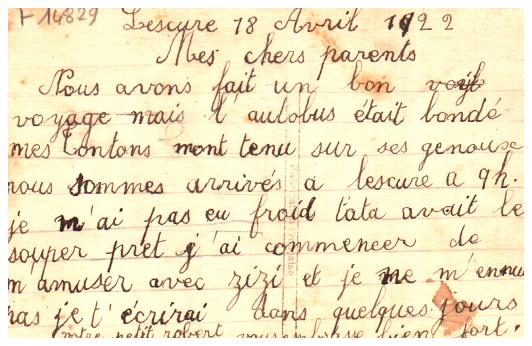 F 14829
Lescure 18 Avril 1922
Mes chers parents
Nous avons fait un bon
voyage mais l'autobus était bondé
mes tontons mont tenu sur ses genouse
nous sommes arrivés a lescure a 9h.
je m'ai pas eu froid tata avait le
souper prêt j'ai commencer de
m'amuser avec zizi et je ne m'ennui
pas je t'écrirai dans quelques jours
votre petit robert vous embrasse bien fort.